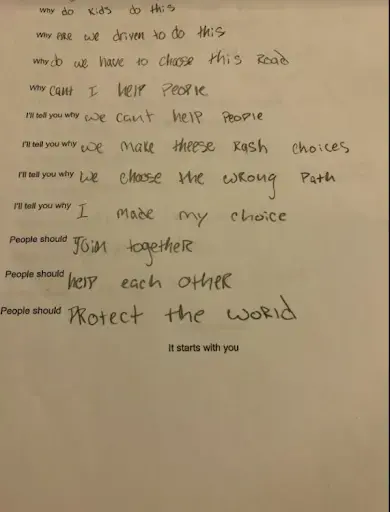 Why do kids do this
Why are we driven to do this
Why do we have to choose this Road
Why cant I help People
I'll tell you why we cant help People
I'll tell you why we make theese Rash choices
I'll tell you why we choose the wrong Path
I'll tell you why I made my choice
People should Join together
People should help each other
People should Protect the world
It starts with you